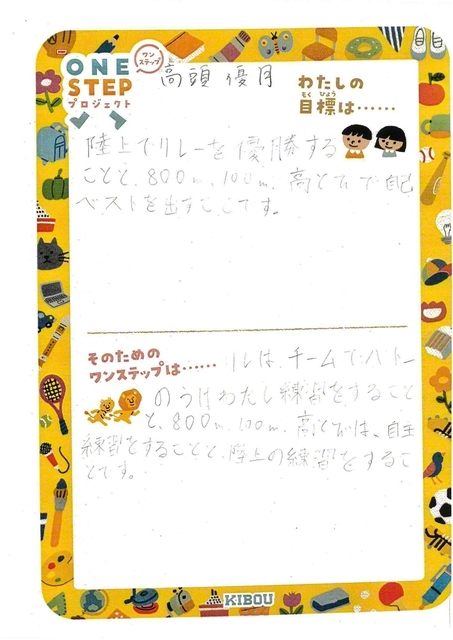 ONE
STEP
プロジェクト
ワン
ステップ
高頭 優月
わたしの
もくひょう
目標は……
陸上でリレーを優勝する
ことと、800m、100m、高とびで自己
ベストを出すことです。
そのための
ワンステップは……
リレは、チームでバトー
のうけわたし練習をすること
と、800m、100m、高とびは、自主
練習をすることと、陸上の練習をするこ
とです。
KIBOU